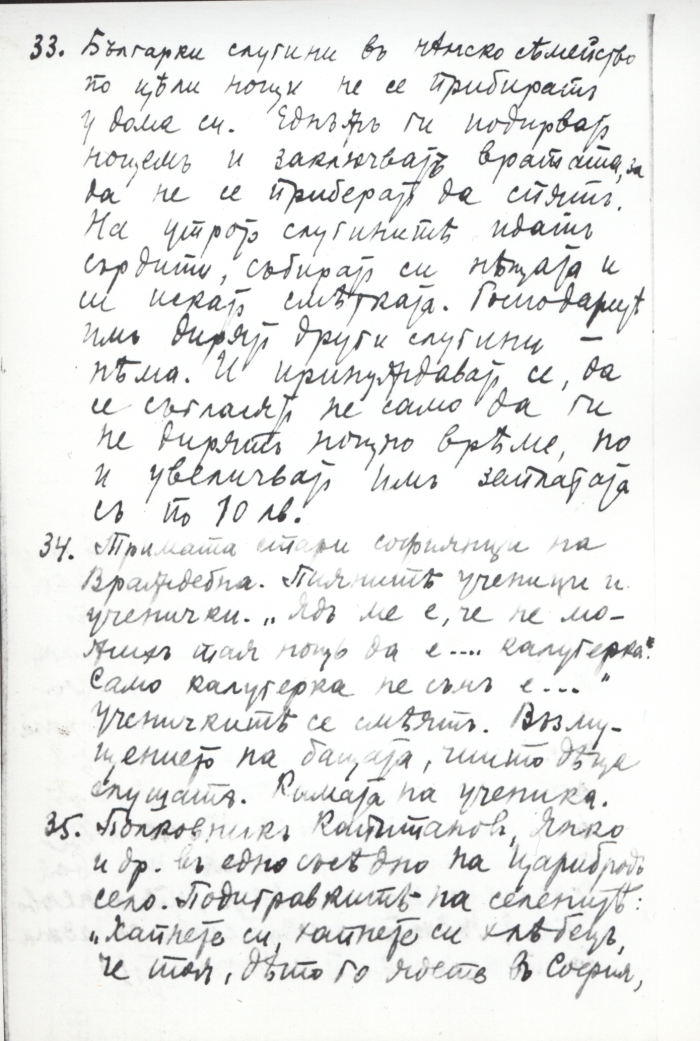 33. Българки слугини въ чѫжско сѣмейство
по цѣли нощи не се прибиратъ
у дома си. Еднѫжъ ги подирватъ
нощемъ и заключватъ вратата, за
да не се прибератъ да спятъ.
На утрото слугинитѣ идатъ
сърдити, събиратъ си нѣщата и
си искатъ смѣтката. Господаритѣ
имъ дирятъ други слугини —
нѣма. И принуждаватъ се, да
се съгласятъ не само да ги
не дирятъ нощно врѣме, но
и увеличватъ имъ заплатата
съ по 10 лв.
34. Тримата стари софиянци на
Враждебна. Пиянитѣ ученици и
ученички. „Ядъ ме е, че не мо-
жихъ тая нощь да е.... калугерка.
Само калугерка не сънъ е...."
Ученичкитѣ се смѣятъ. Възму-
щението на бащата, чиито дѣца
слушатъ. Камата на ученика.
35. Полковникъ Капитановъ, Янко
и др. въ едно съсѣдно на Царибродъ
село. Подигравкитѣ на селенитѣ:
„Хапнете си, хапнете си хлѣбецъ,
че тоя, дѣто го ядете въ София,